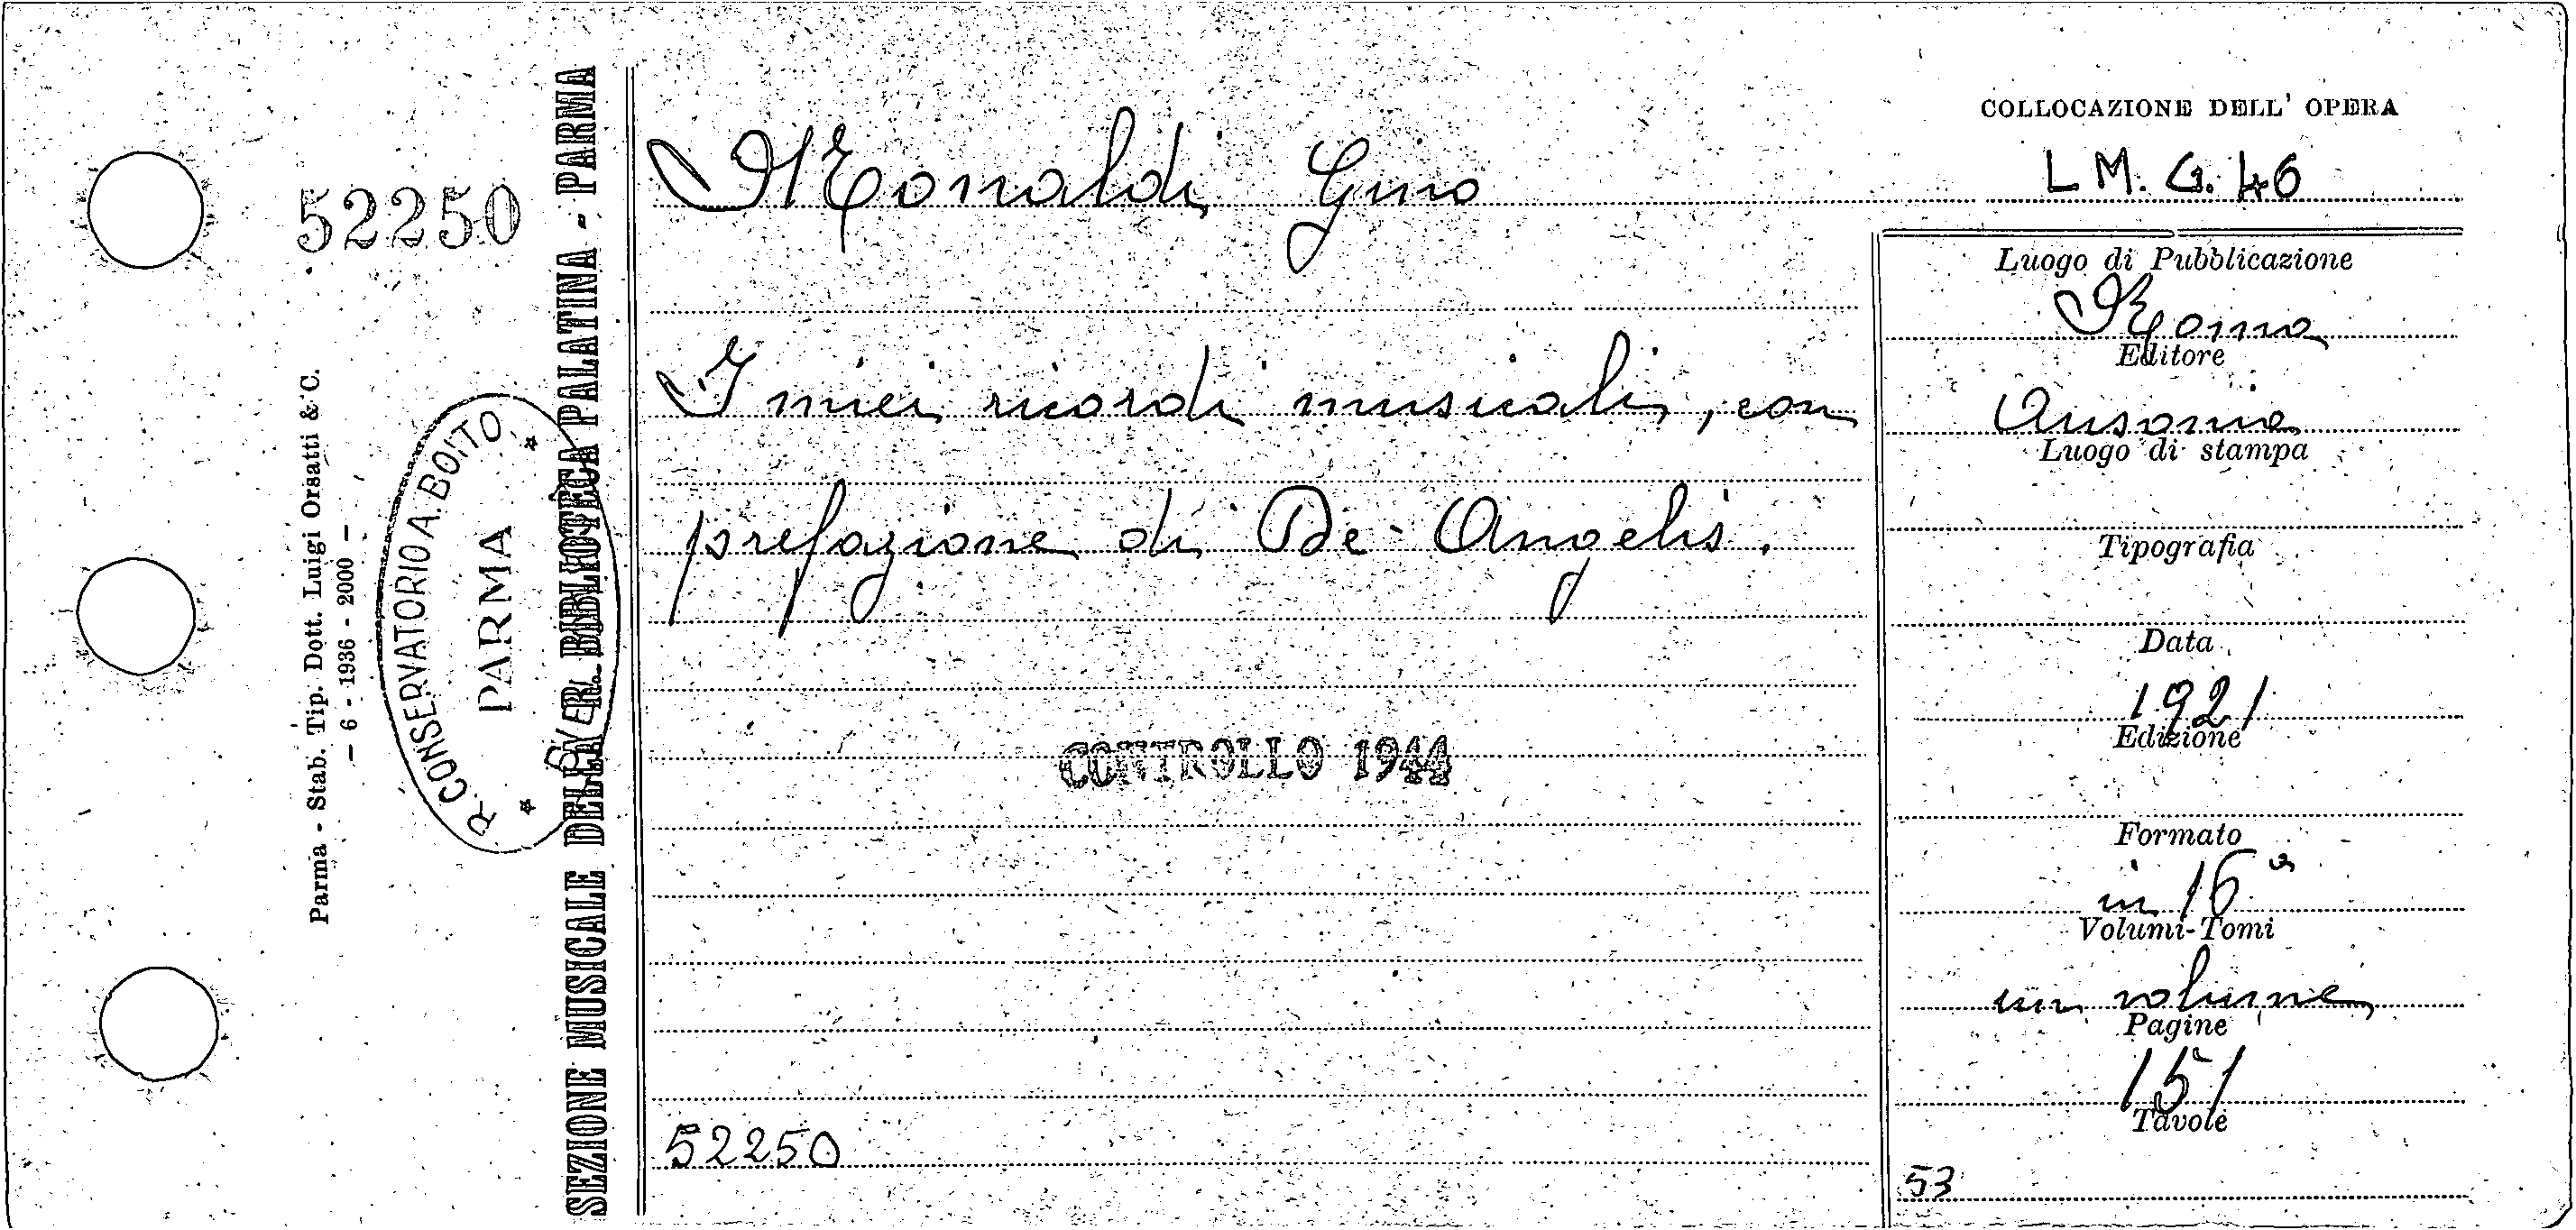 COLLOCAZIONE DELL' OPERA
L M. G. 46
Monaldi Gino
I miei ricordi musicali, con
prefazione di De-Angelis.
CONTROLLO 1944
52250
Luogo di Pubblicazione
Roma
Editore
Ausonia
Luogo di stampa
Tipografia
Data
1921
Edizione
Formato
in 16°
Volumi-Tomi
un volume
Pagine
151
Tavole
53
52250
Parma - Stab. Tip. Dott. Luigi Orsatti & C.
— 6 - 1936 - 2000 —
R. CONSERVATORIO A. BOITO
PARMA
SEZIONE MUSICALE DELLA R. BIBLIOTECA PALATINA - PARMA